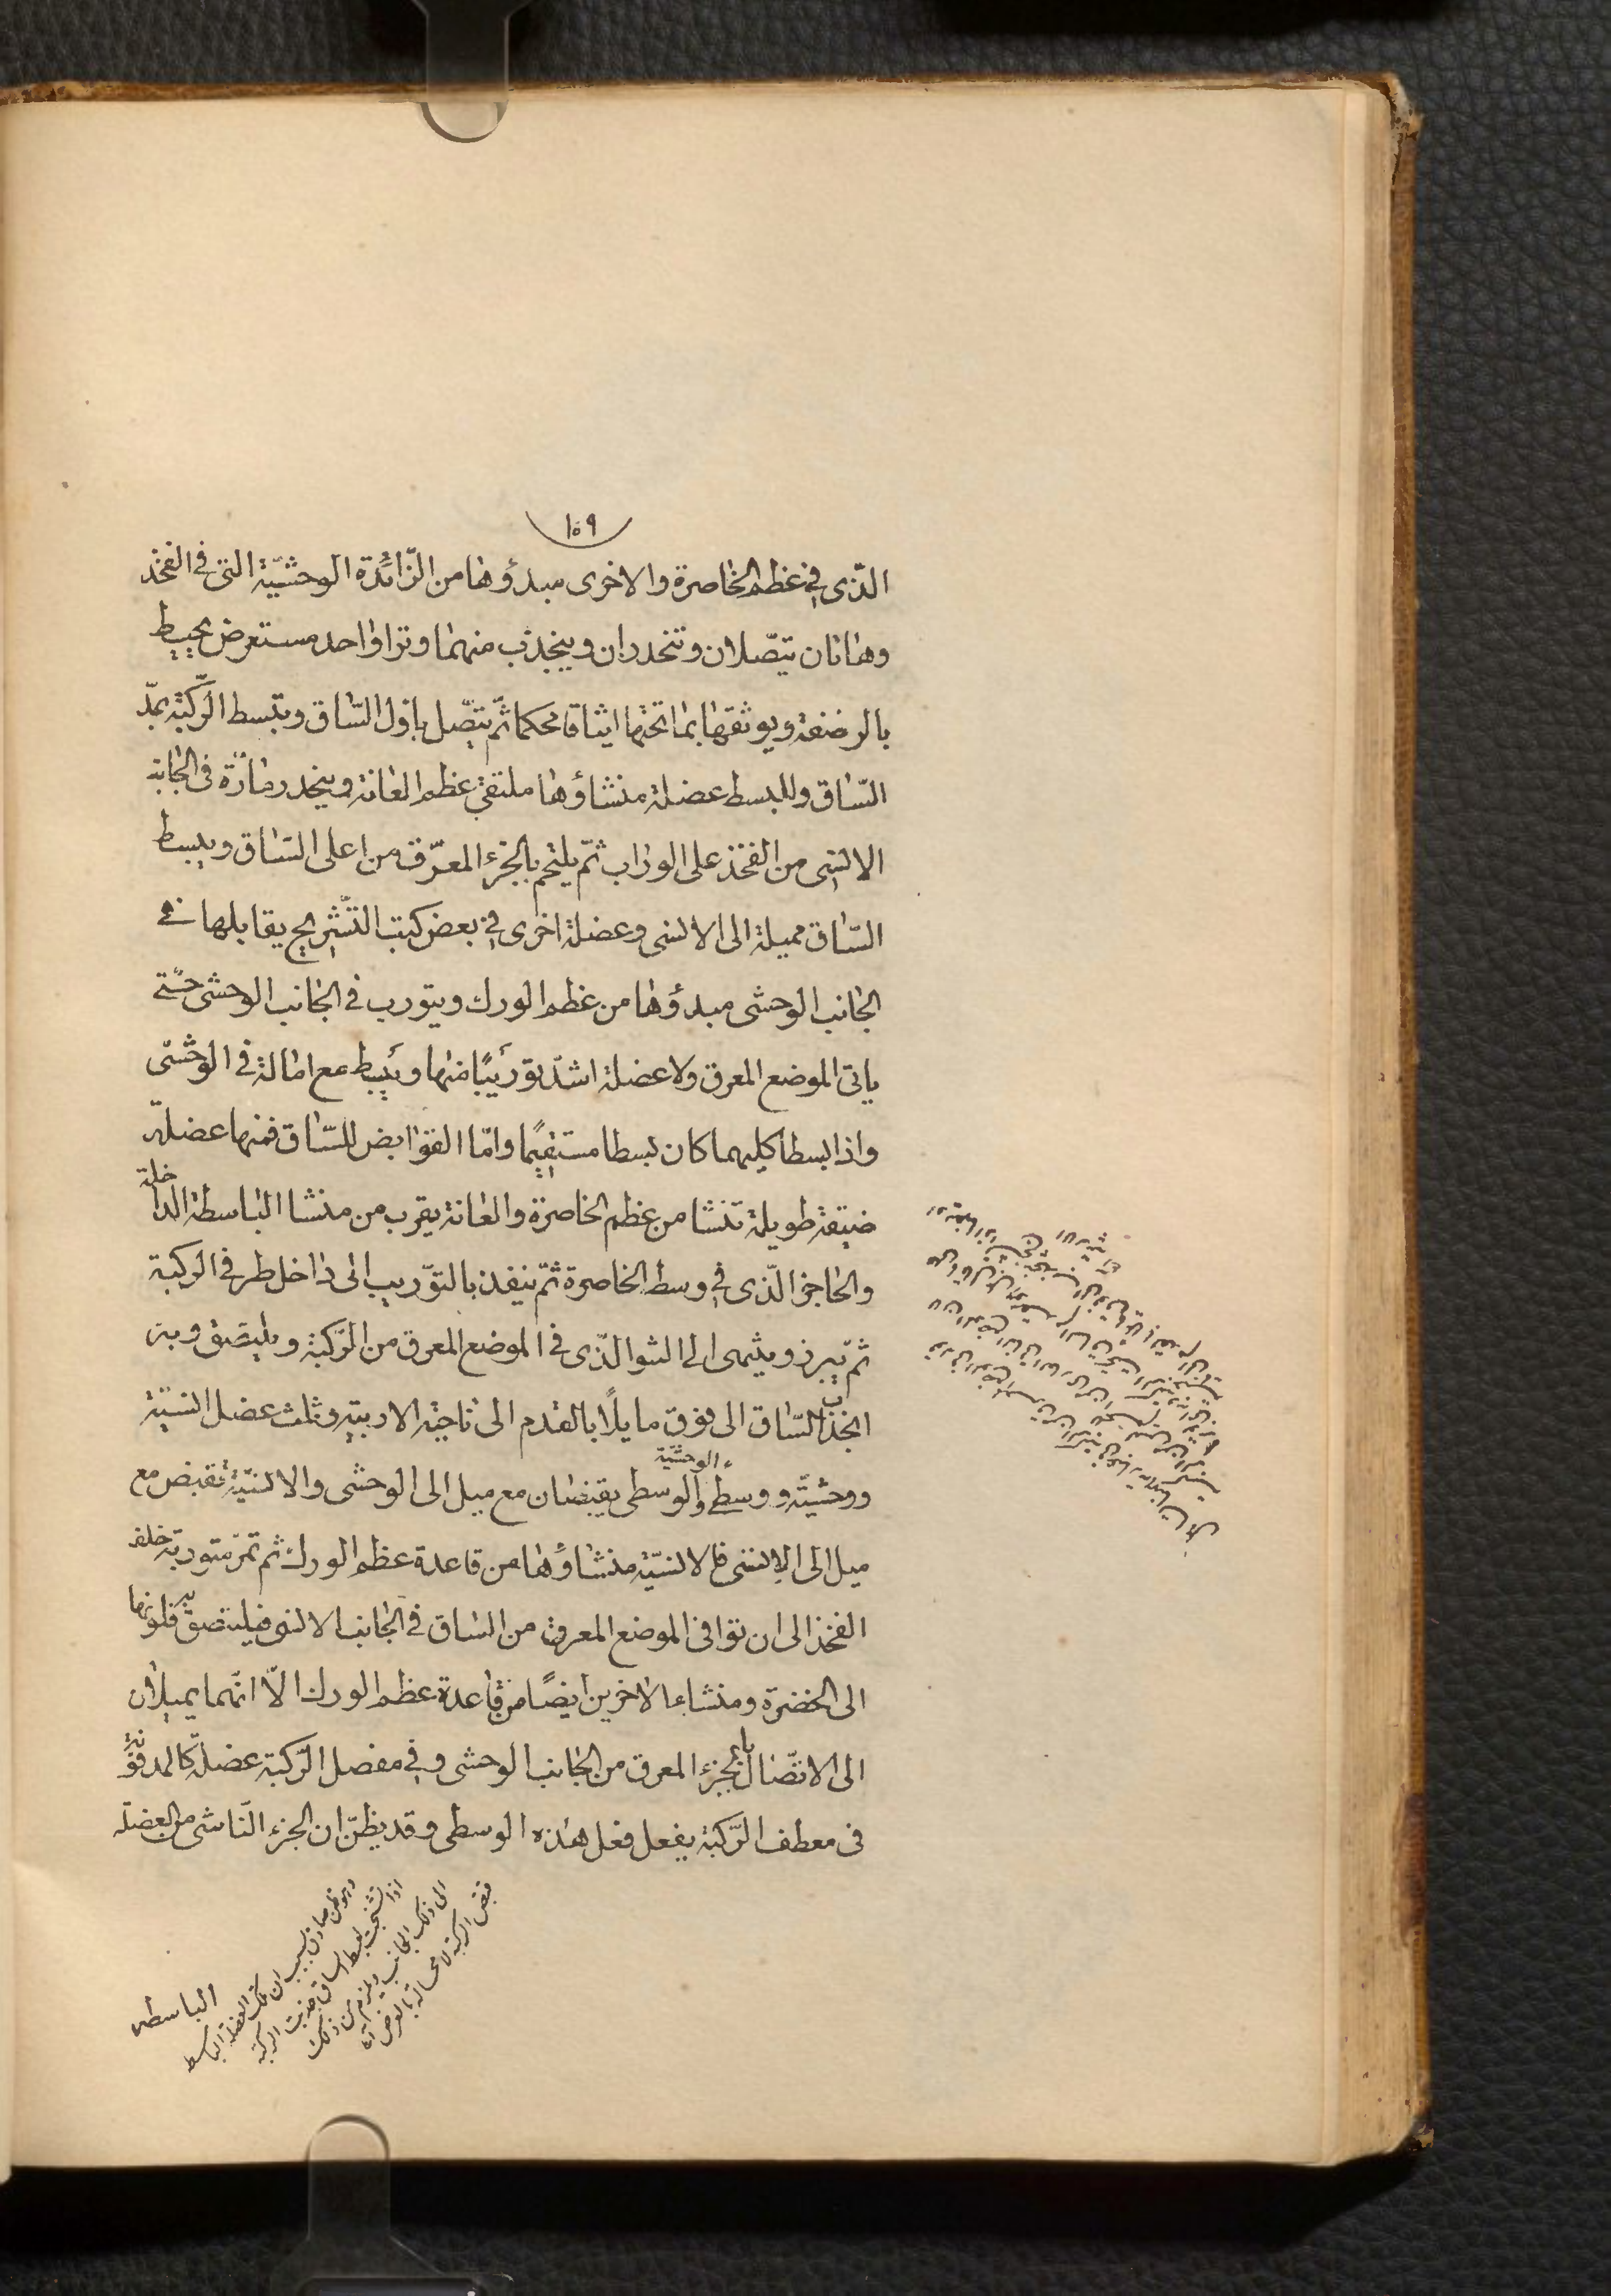 ١٥٩
الّذى فى عظم الخاصرة والاخرى مبدؤها من الزّائدة الوحشيّة التى فى الفخذ
وهاتان يتّصلان وتنحدران وينجذب منهما وتر اواحد مستعرض يحيط
بالرضفة ويوثقها بما تحتها ايثاقا محكما ثمّ يتّصل باوّل السّاق ويبسط الرّكبة بمدّ
السّاق وللبسط عضلة منشاؤها ملتقى عظم العانة وينحدر مارّة فى الجانب
الانسى من الفخذ على الوراب ثمّ يلتحم بالجزء المعرّق من اعلى السّاق ويبسط
السّاق مميلة الى الانسى وعضلة اخرى فى بعض كتب التّشريح يقابلها فى
الجانب الوحشى مبدؤها من عظم الورك ويتورب فى الجانب الوحشى حتّى
ياتى الموضع المعرق ولا عضلة اشدّ توريبًا منها ويبسط مع امالة فى الوحشى
واذا بسطا كليهما كان بسطا مستقيمًا وامّا القوابض للسّاق فمنها عضلة
ضيقة طويلة تنشا من عظم الخاصرة والعانة يقرب من منشا الباسطة الداخلة
والحاجز الّذى فى وسط الخاصرة ثمّ ينفذ بالتّوريب الى داخل طرفى الركبة
ثمّ يبرز وينتهى الى النتو الّذى فى الموضع المعرق من الرّكبة ويلتصق وبه
انجذاب السّاق الى فوق مايلًا بالقدم الى ناحية الاربية وثلث عضل انسيّة
ووحشيّة ووسطى والوحشيّة والوسطى يقبضان مع ميل الى الوحشى والانسيّة تقبض مع
ميل الى الانسى فالانسيّة منشاؤها من قاعدة عظم الورك ثم تمرّ متوربة خلف
الفخذ الى ان توافى الموضع المعرق من السّاق فى الجانب الانسى فيلتصق به فلونها
الى الخضرة ومنشاء الاخرين ايضًا من قاعدة عظم الورك الّا انّهما يميلان
الى الاتّصال بالجزء المعرق من الجانب الوحشى وفى مفصل الرّكبة عضلة كالمدفونة
فى معطف الرّكبة يفعل فعل هذه الوسطى وقد يظنّ ان الجزء النّاشى من العضلة
وهو ظن صادق بسبب ان تلك العضلة الباسط
اذا تشنجت لبسط الساق جذبت الركبة
الى ذلك الجانب ويلزم من ذلك
قبض الركبة لا محالة بالعرض
الباسطه